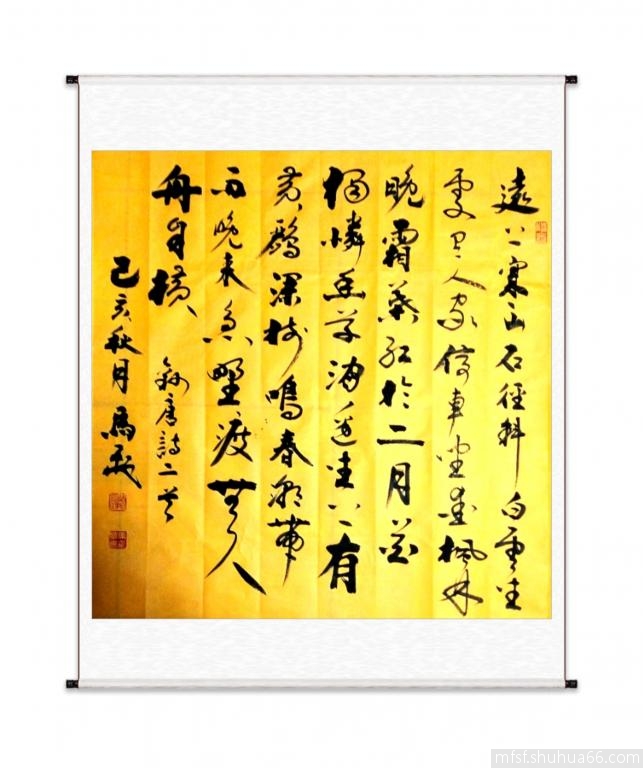 遠上寒山石徑斜白雲生
處有人家停車坐愛楓林
晚霜葉紅於二月花
獨憐幽草澗邊生上有
黃鸝深樹鳴春潮帶
雨晚來急野渡無人
舟自橫
錄唐詩二首
己亥秋月馬
mfsf.shuhua66.com